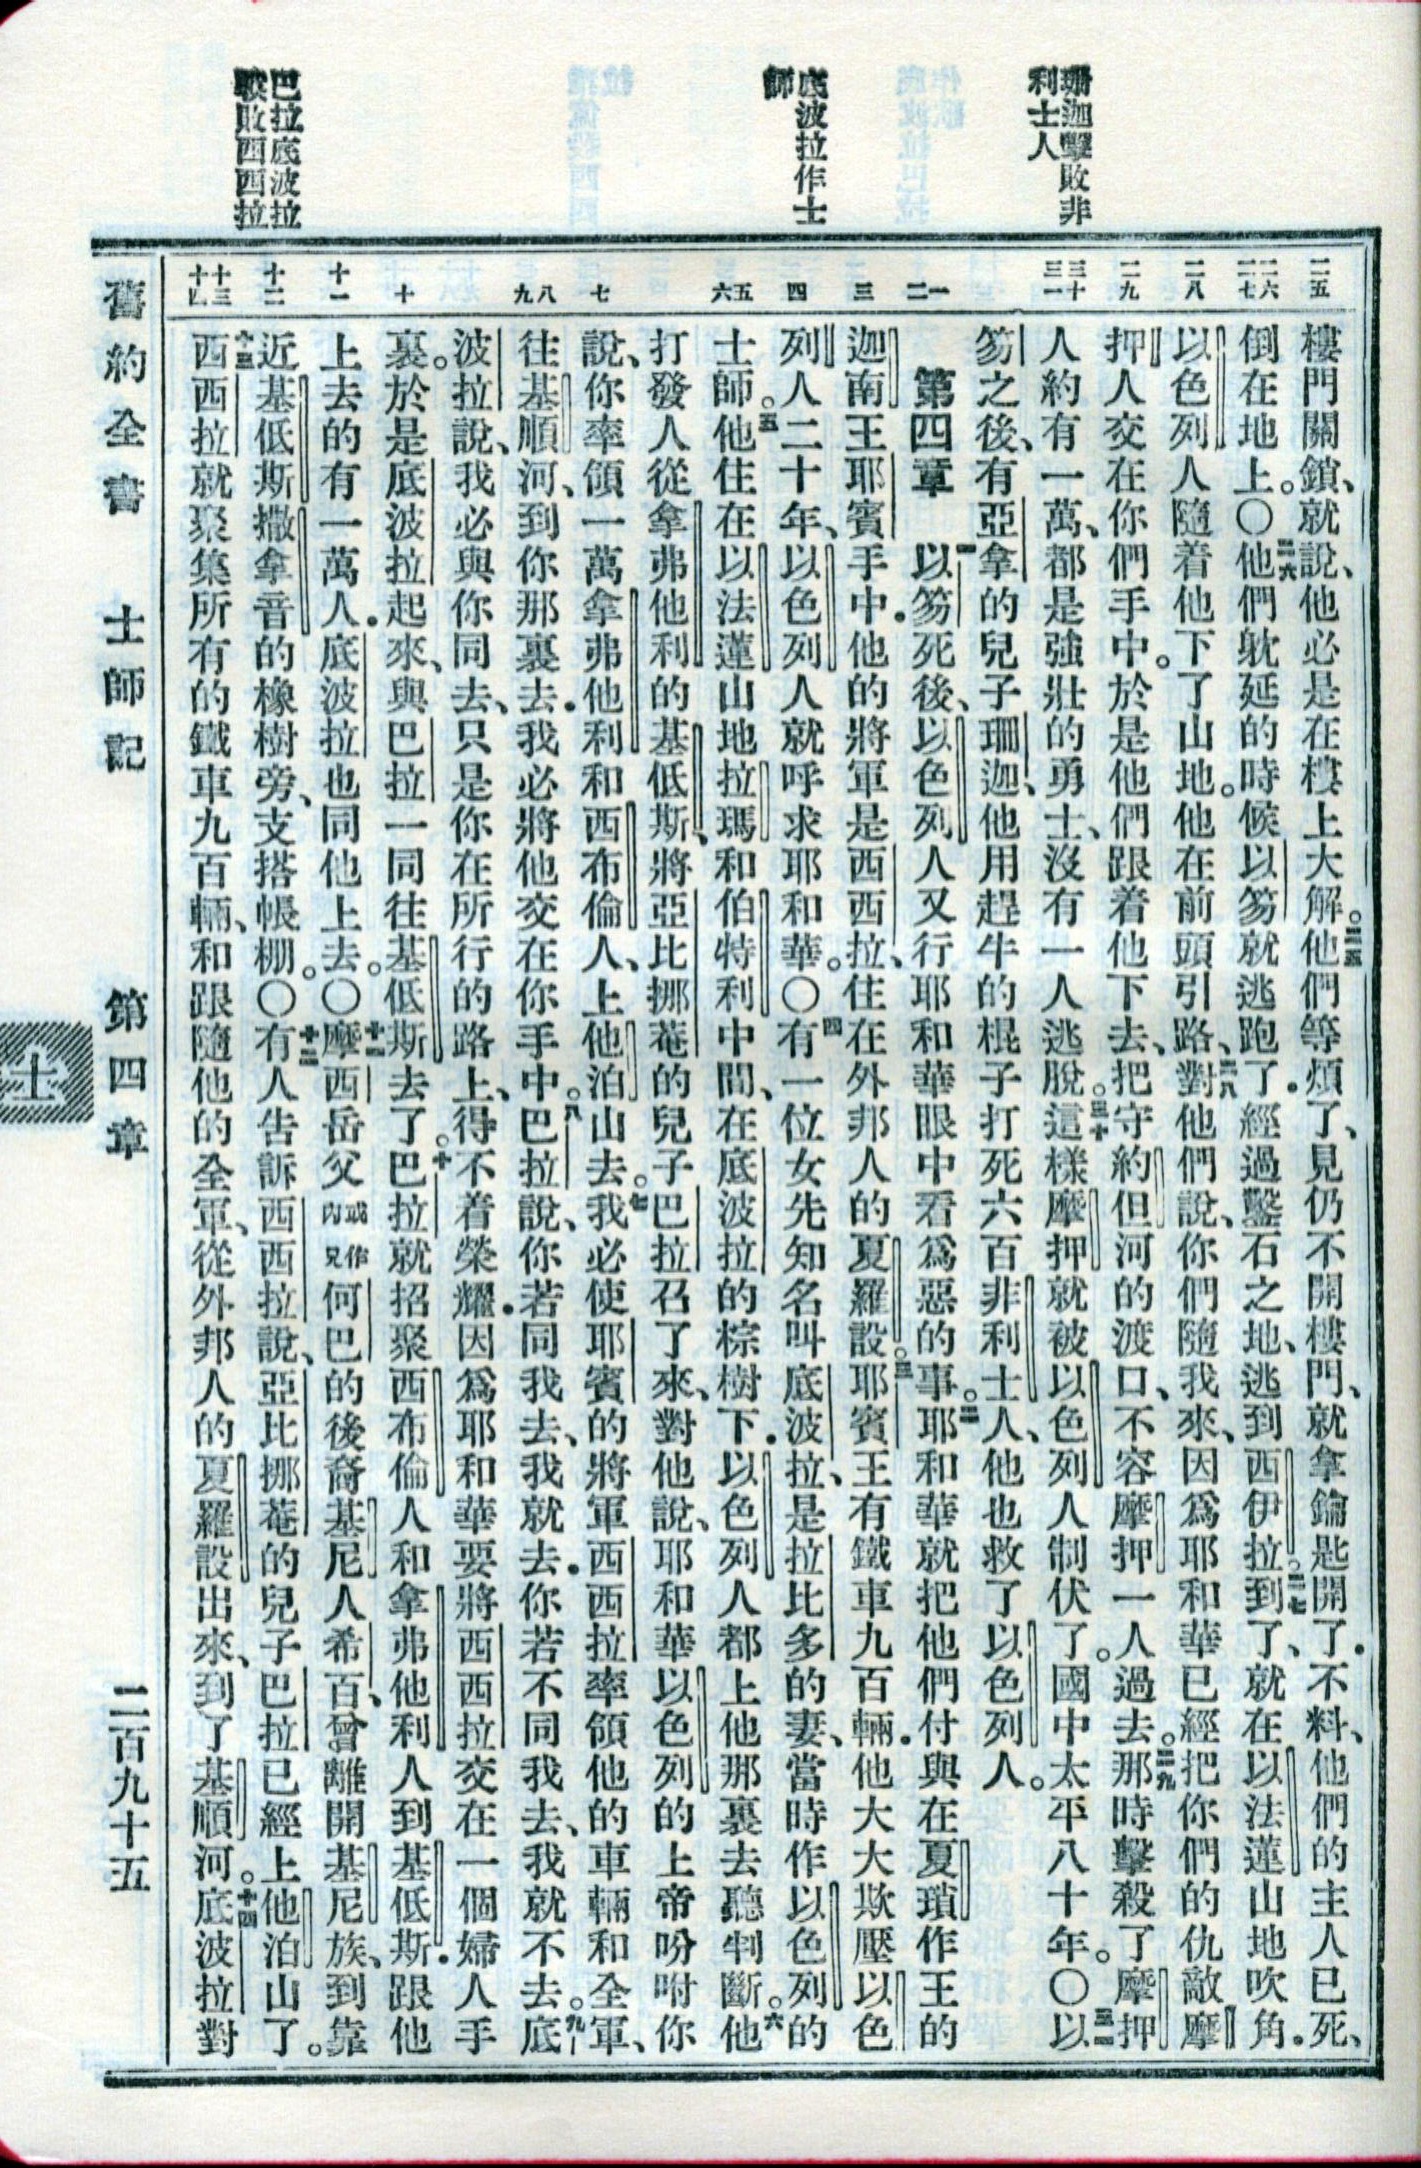 珊迦擊敗非
利士人
底波拉作士
師
巴拉底波拉
擊敗西西拉
二五
二六
二七
二八
二九
三十
三一
一
二
三
四
五
六
七
八
九
十
十一
十二
十三
十四
樓門關鎖、就說、他必是在樓上大解。二五他們等煩了、見仍不開樓門、就拿鑰匙開了．不料、他們的主人已死、
倒在地上。〇二六他們躭延的時候以笏就逃跑了．經過鑿石之地、逃到西伊拉。二七到了、就在以法蓮山地吹角．
以色列人隨着他下了山地。他在前頭引路、二八對他們說、你們隨我來、因爲耶和華已經把你們的仇敵摩
押人交在你們手中。於是他們跟着他下去、把守約但河的渡口、不容摩押一人過去。二九那時擊殺了摩押
人約有一萬、都是強壯的勇士、沒有一人逃脫。三十這樣摩押就被以色列人制伏了。國中太平八十年。〇三一以
笏之後、有亞拿的兒子珊迦、他用趕牛的棍子打死六百非利士人、他也救了以色列人。
第四章　一以笏死後、以色列人又行耶和華眼中看爲惡的事。二耶和華就把他們付與在夏瑣作王的
迦南王耶賓手中．他的將軍是西西拉、住在外邦人的夏羅設。三耶賓王有鐵車九百輛．他大大欺壓以色
列人二十年、以色列人就呼求耶和華。〇四有一位女先知名叫底波拉、是拉比多的妻、當時作以色列的
士師。五他住在以法蓮山地拉瑪和伯特利中間、在底波拉的棕樹下．以色列人都上他那裏去聽判斷。六他
打發人從拿弗他利的基低斯、將亞比挪菴的兒子巴拉召了來、對他說、耶和華以色列的上帝吩咐你
說、你率領一萬拿弗他利和西布倫人、上他泊山去。七我必使耶賓的將軍西西拉率領他的車輛和全軍、
往基順河、到你那裏去．我必將他交在你手中。八巴拉說、你若同我去、我就去．你若不同我去、我就不去。九底
波拉說、我必與你同去、只是你在所行的路上、得不着榮耀．因爲耶和華要將西西拉交在一個婦人手
裏。於是底波拉起來、與巴拉一同往基低斯去了。十巴拉就招聚西布倫人和拿弗他利人到基低斯．跟他
上去的有一萬人．底波拉也同他上去。〇十一摩西岳父或作內兄何巴的後裔基尼人希百、曾離開基尼族、到靠
近基低斯撒拿音的橡樹旁、支搭帳棚。〇十二有人告訴西西拉說、亞比挪菴的兒子巴拉已經上他泊山了。
十三西西拉就聚集所有的鐵車九百輛、和跟隨他的全軍、從外邦人的夏羅設出來、到了基順河。十四底波拉對
舊約全書　士師記　第四章　二百九十五
士